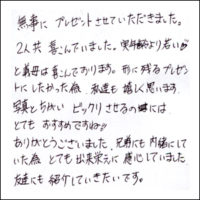 無事に プレゼントさせていただきました。
2人共 喜こんでいました。実年齢より若い
と義母は喜こんでおります。形に残るプレゼント
にしたかった為 私達も嬉しく思います。
写真とちがい ビックリさせるには
とても おすすめですね
ありがとうございました。兄弟にも内緒にして
いた為 とても出来栄えに 感心していました
友達にも 紹介していきたいです。